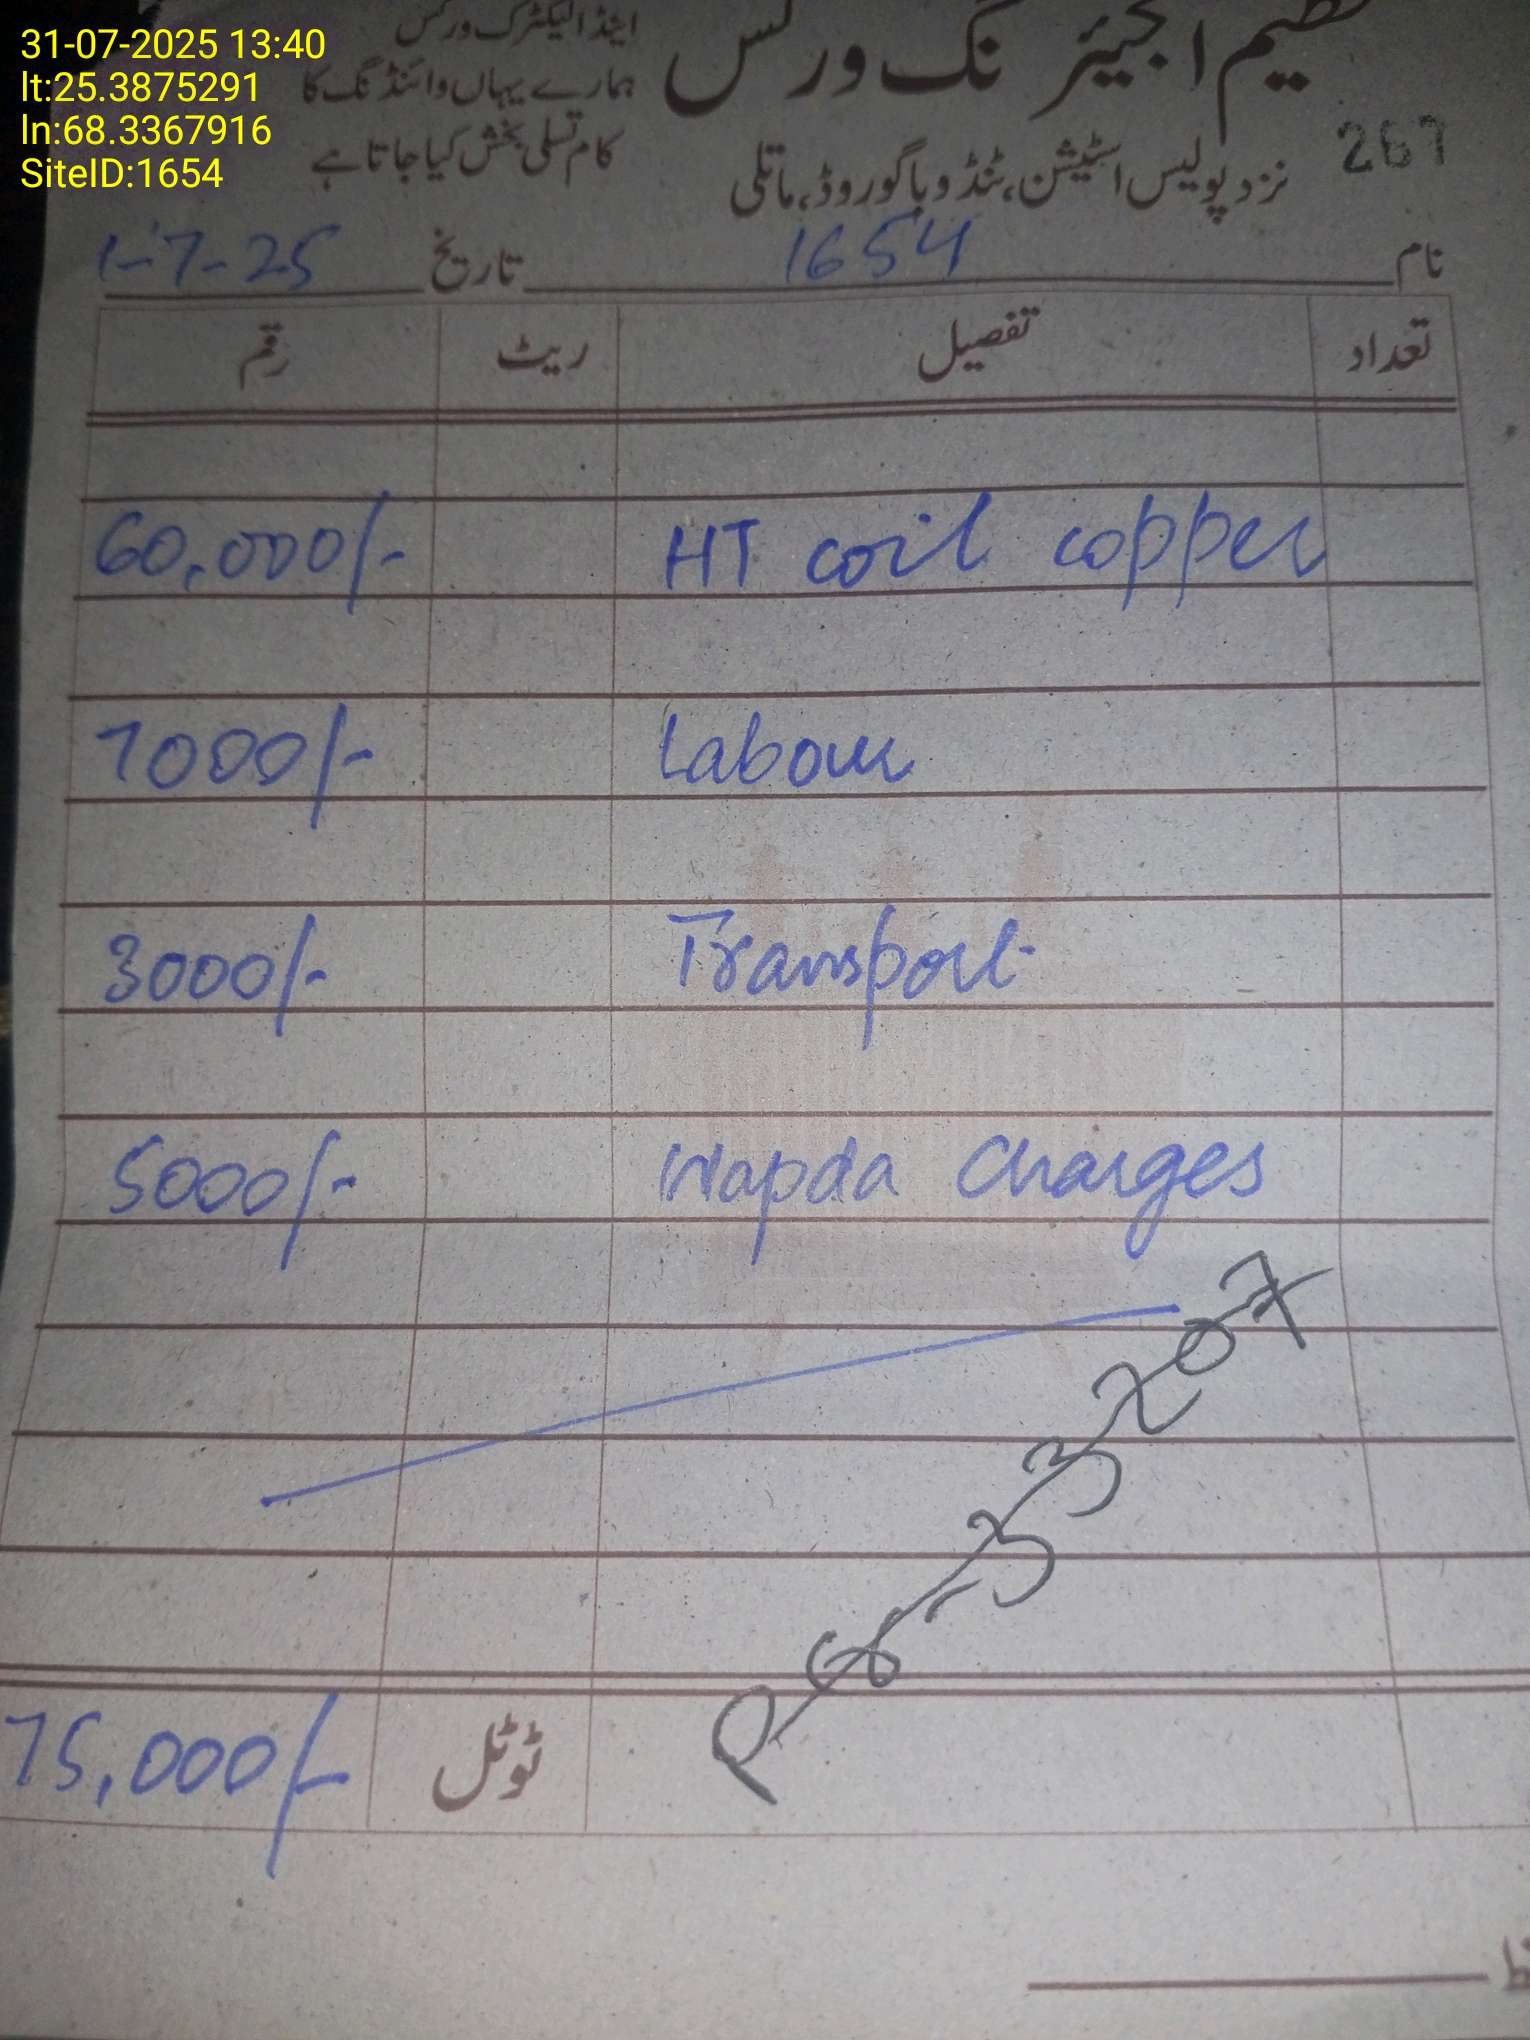 31-07-2025 13:40
lt:25.3875291
ln:68.3367916
SiteID:1654
انجینئرنگ ورکس
اینڈ الیکٹرک ورکس
ہمارے یہاں وائنڈنگ کا
کام تسلی بخش کیا جاتا ہے
267
نزد پولیس اسٹیشن، ٹنڈو باگو روڈ، ماتلی
نام 1654 تاریخ 1-7-25
تعداد تفصیل ریٹ رقم
HT coil copper 60,000/-
Labour 7000/-
Transport 3000/-
Wapda Charges 5000/-
ٹوٹل 75,000/-